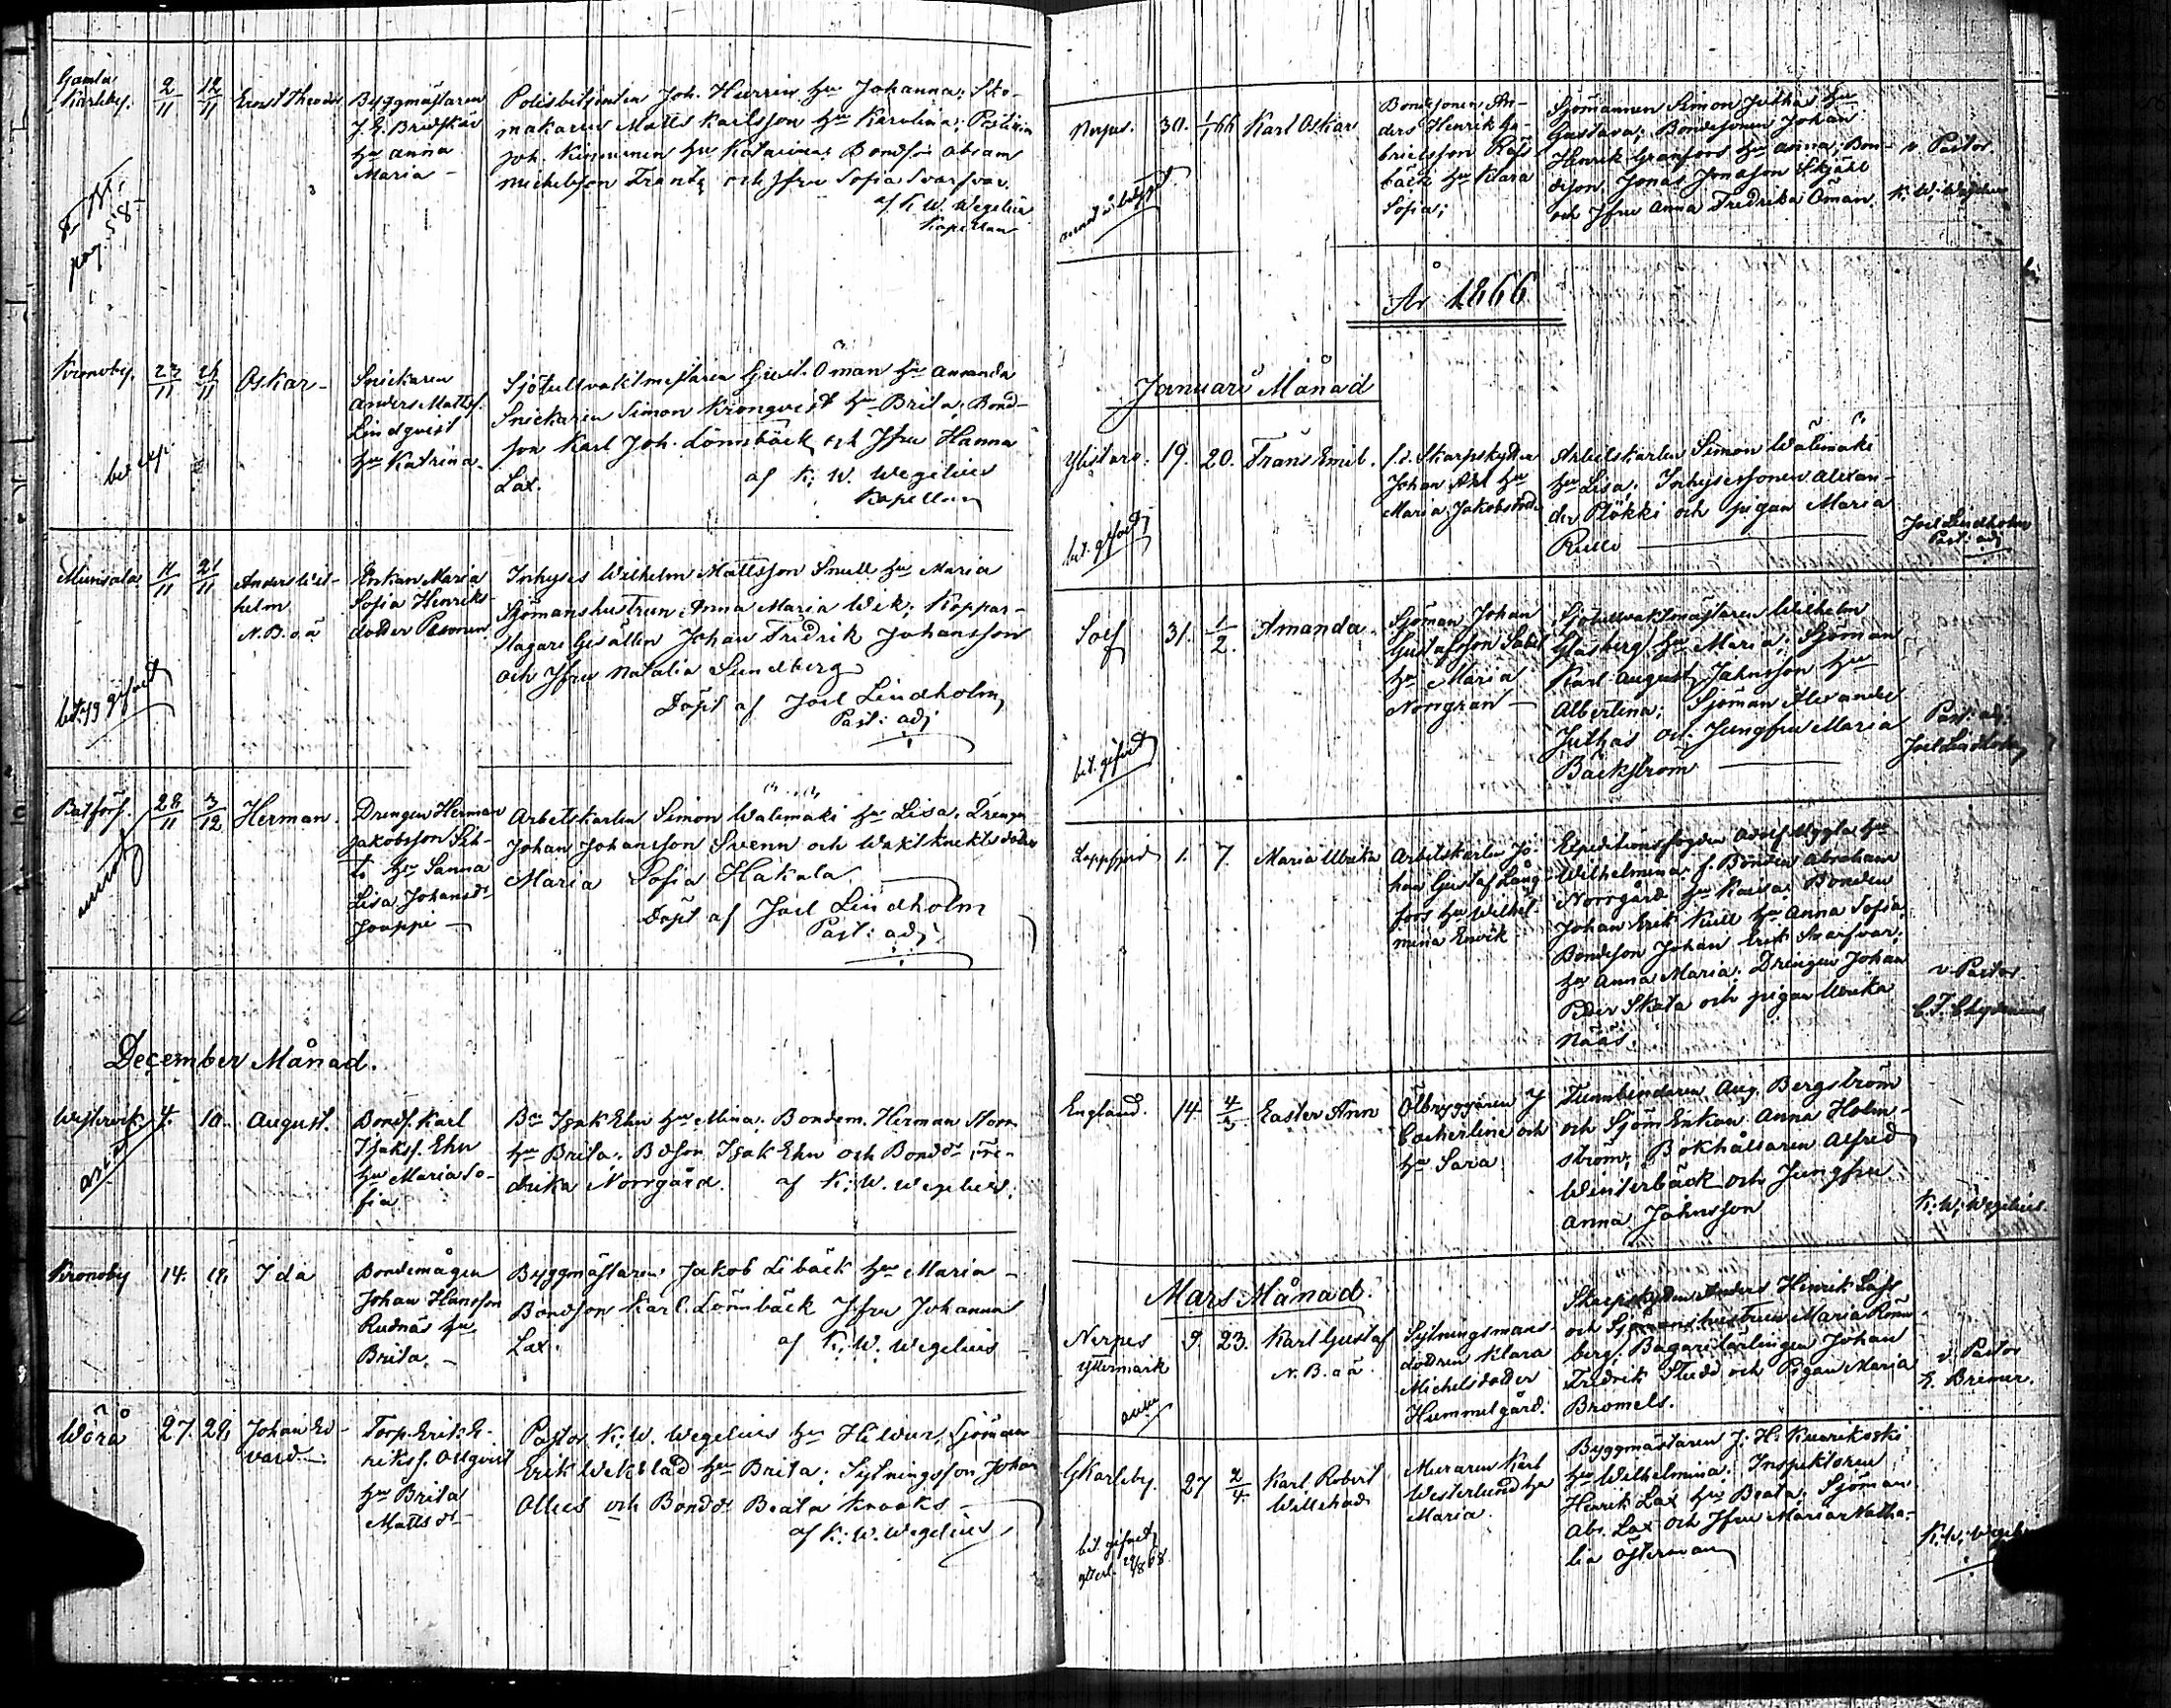 Gamla
Karleby. 2/11 12/11 Ernst Theodor
Byggmästaren
J. E. Bredskär
hu Anna
Maria –
Polisbetjenten Joh. Hurrin hu Johanna; Sko-
makaren Matts Karlsson hu Karolina;
Joh. Kinnunen hu Katarina; Bondson Abram
Michelsson Frants och Jfru Sofia Svarfvar.
af K. W. Wegelius
Kapellan
pag. 58
Kronoby. 23/11 26/11 Oskar –
Snickaren
Anders Mattss.
Lindqvist
hu Katrina.
Sjötullvaktmestaren Gust. Öman hu Amanda
Snickaren Simon Kronqvist hu Brita; Bond-
son Karl Joh. Lönnbäck och Jfru Hanna
Lax.
af K. W. Wegelius
Kapellan
Munsala 11/11 21/11 Anders Wil-
helm
N. B. o ä
Enkan Maria
Sofia Henriks-
dotter Pesonen
Inhyses Wilhelm Mattsson Snull hu Maria
Sjömanshustrun Anna Maria Wik; Koppar-
slagare Gesällen Johan Fredrik Johansson
och Jfru Natalia Sundberg
Döpt af Joel Lindholm
Past: adj
28/11 3/12 Herman.
Drengen Herman
Jakobsson
hu Sanna
Lisa Johansdr
Jouppi –
Arbetskarlen Simon Wälimäki hu Lisa, Drengen
Johan Johansson Svenn och Waktknektsdotter
Maria Sofia Hakala
Döpt af Joel Lindholm
Past: adj
December Månad.
Westervik. 4. 10. August.
Bonds. Karl
Isakss. Ehn
hu Maria So-
fia.
Bn Isak Ehn hu Mina; Bondem. Herman Norr
hu Brita; Bdson Isak Ehn och Bonddr Fre-
drika Norrgård. af K. W. Wegelius.
Kronoby 14. 19. Ida
Bondemågen
Johan Hansson
Rudnäs hu
Brita. –
Byggmästaren Jakob Libäck hu Maria –
Bondson Karl Lönnbäck Jfru Johanna
Lax. af K. W. Wegelius
Wörå 27. 29. Johan Ed-
vard –
Torp. Erik E-
rikss. Allqvist
hu Brita
Matts dr
Pastor K. W. Wegelius hu Hildur, Sjöman
Erik Wekblad hu Brita; Sytningsson Johan
Ollus och Bonddr Beata Knooks –
af K. W. Wegelius
Nerpes. 30. 1/1 66 Karl Oskar
Bondsonen An-
ders Henrik Ga-
brielsson Räfs-
bäck hu Klara
Sofia;
Sjömannen Simon Juthas hu
Gustava; Bondesonen Johan
Henrik Granfors hu Anna; Bon-
deson Jonas Jonasson Skjäll
och Jfru Anna Fredrika Öman.
v. Pastor
K. W. Wegelius
År 1866
Januari Månad
Ylistaro. 19. 20. Frans Emil.
f.d. Skarpskytten
Johan Ahl hu
Maria Jakobsdr
Arbetskarlen Simon Wälimäki
hu Lisa; Inhysessonen Alexan-
der Plökki och pigan Maria
Rullo
Joel Lindholm
Past: adj
bet. gifvet
Solf 31. 1/2. Amanda.
Sjöman Johan
Gustafsson Sabel
hu Maria
Norrgran –
Sjötullvaktmästaren Wilhelm
Glasberg hu Maria; Sjöman
Karl August Jahnsson hu
Albertina; Sjöman Alexander
Juthas och Jungfru Maria
Backström
Past: adj:
Joel Lindholm
bet. gifvet
Lappfjerd 1. 7. Maria Ulrika
Arbetskarlen Jo-
han Gustaf Lång-
fors hu Wilhel-
mina Envik
Expeditionsfogden Adolf Uggla hu
Wilhelmina; f. Bonden Abraham
Norrgård hu Kaisa; Bonden
Johan Erik Kull hu Anna Sofia;
Bondeson Johan Erik Svarfvar;
hu Anna Maria; Drengen Johan
Peter Skata och pigan Ulrika
Näås.
v. Pastor
C. J. Chydenius
England. 14 4/3 Easter Ann
Ölbryggaren J
Cockerline och
hu Sara.
Tunnbindaren Aug. Bergström
och Sjöm: Enkan Anna Holm-
ström; Bokhållaren Alfred
Winterbäck och Jungfru
Anna Johnsson
K. W. Wegelius.
Mars Månad.
Nerpes
Yttermark 9 23. Karl Gustaf
N. B. o ä.
Sytningsmans-
dottren Klara
Michelsdotter
Hummelgård.
Skarpskytten Anders Henrik Lass
och Sjömanshustrun Maria Rönn-
berg; Bagarelärlingen Johan
Fredrik Studd och Pigan Maria
Bromels.
v. Pastor
K. Bremer.
GKarleby. 27 2/4 Karl Robert
Willehad
Muraren Karl
Westerlund hu
Maria.
Byggmästaren J. H. Kuorikoski
hu Wilhelmina; Inspektoren
Henrik Lax hu Beata; Sjöman
Abr. Lax och Jfru Maria Natha-
lia Österman
K. W. Wegelius
bet. gifvet